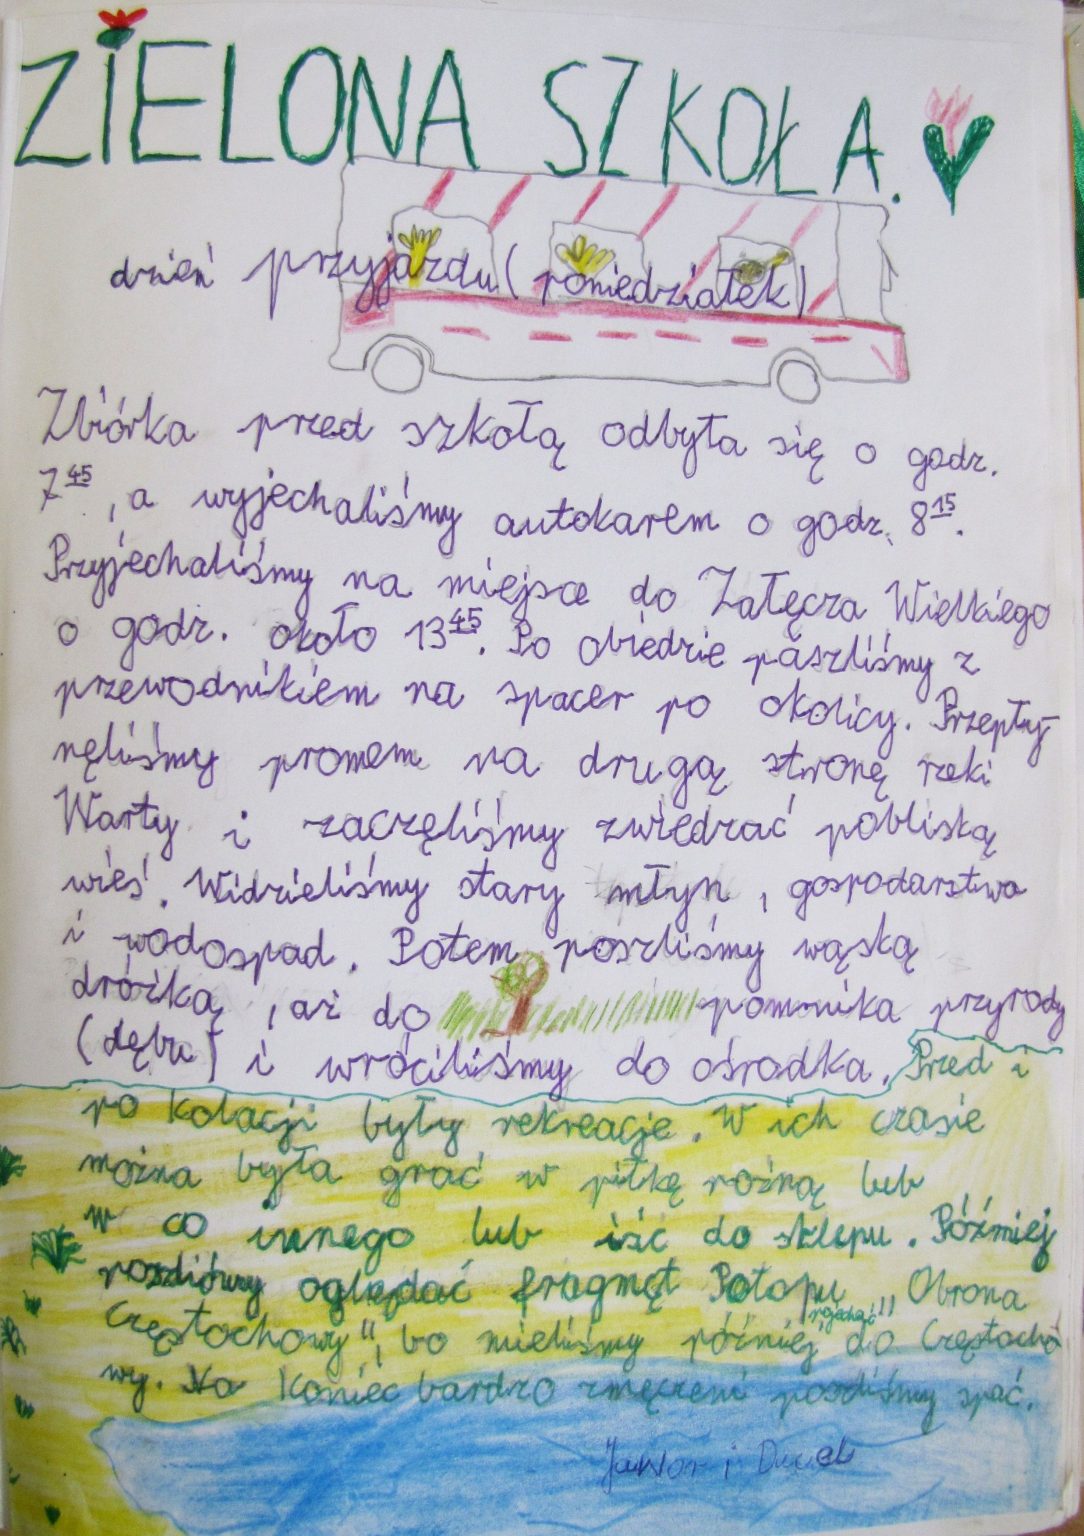 ZIELONA SZKOŁA.
dzień przyjazdu (poniedziałek)
Zbiórka przed szkołą odbyła się o godz.
7 45, a wyjechaliśmy autokarem o godz. 8 15.
Przyjechaliśmy na miejsce do Załęcza Wielkiego
o godz. około 13 45. Po obiedzie paszliśmy z
przewodnikiem na spacer po okolicy. Przepły-
nęliśmy promem na drugą stronę rzeki
Warty i zaczęliśmy zwiedzać pobliską
wieś. Widzieliśmy stary młyn, gospodarstwa
i wodospad. Potem poszliśmy wąską
dróżką, aż do pomnika przyrody
(dębu) i wróciliśmy do ośrodka. Przed i
po kolacji były rekreacje. W ich czasie
można było grać w piłkę nożną lub
w co innego lub iść do sklepu. Później
poszliśmy oglądać fragmęt Potopu „Obrona
Częstochowy", bo mieliśmy później do Częstocho
wy. Na koniec bardzo zmęczeni poszliśmy spać.
i